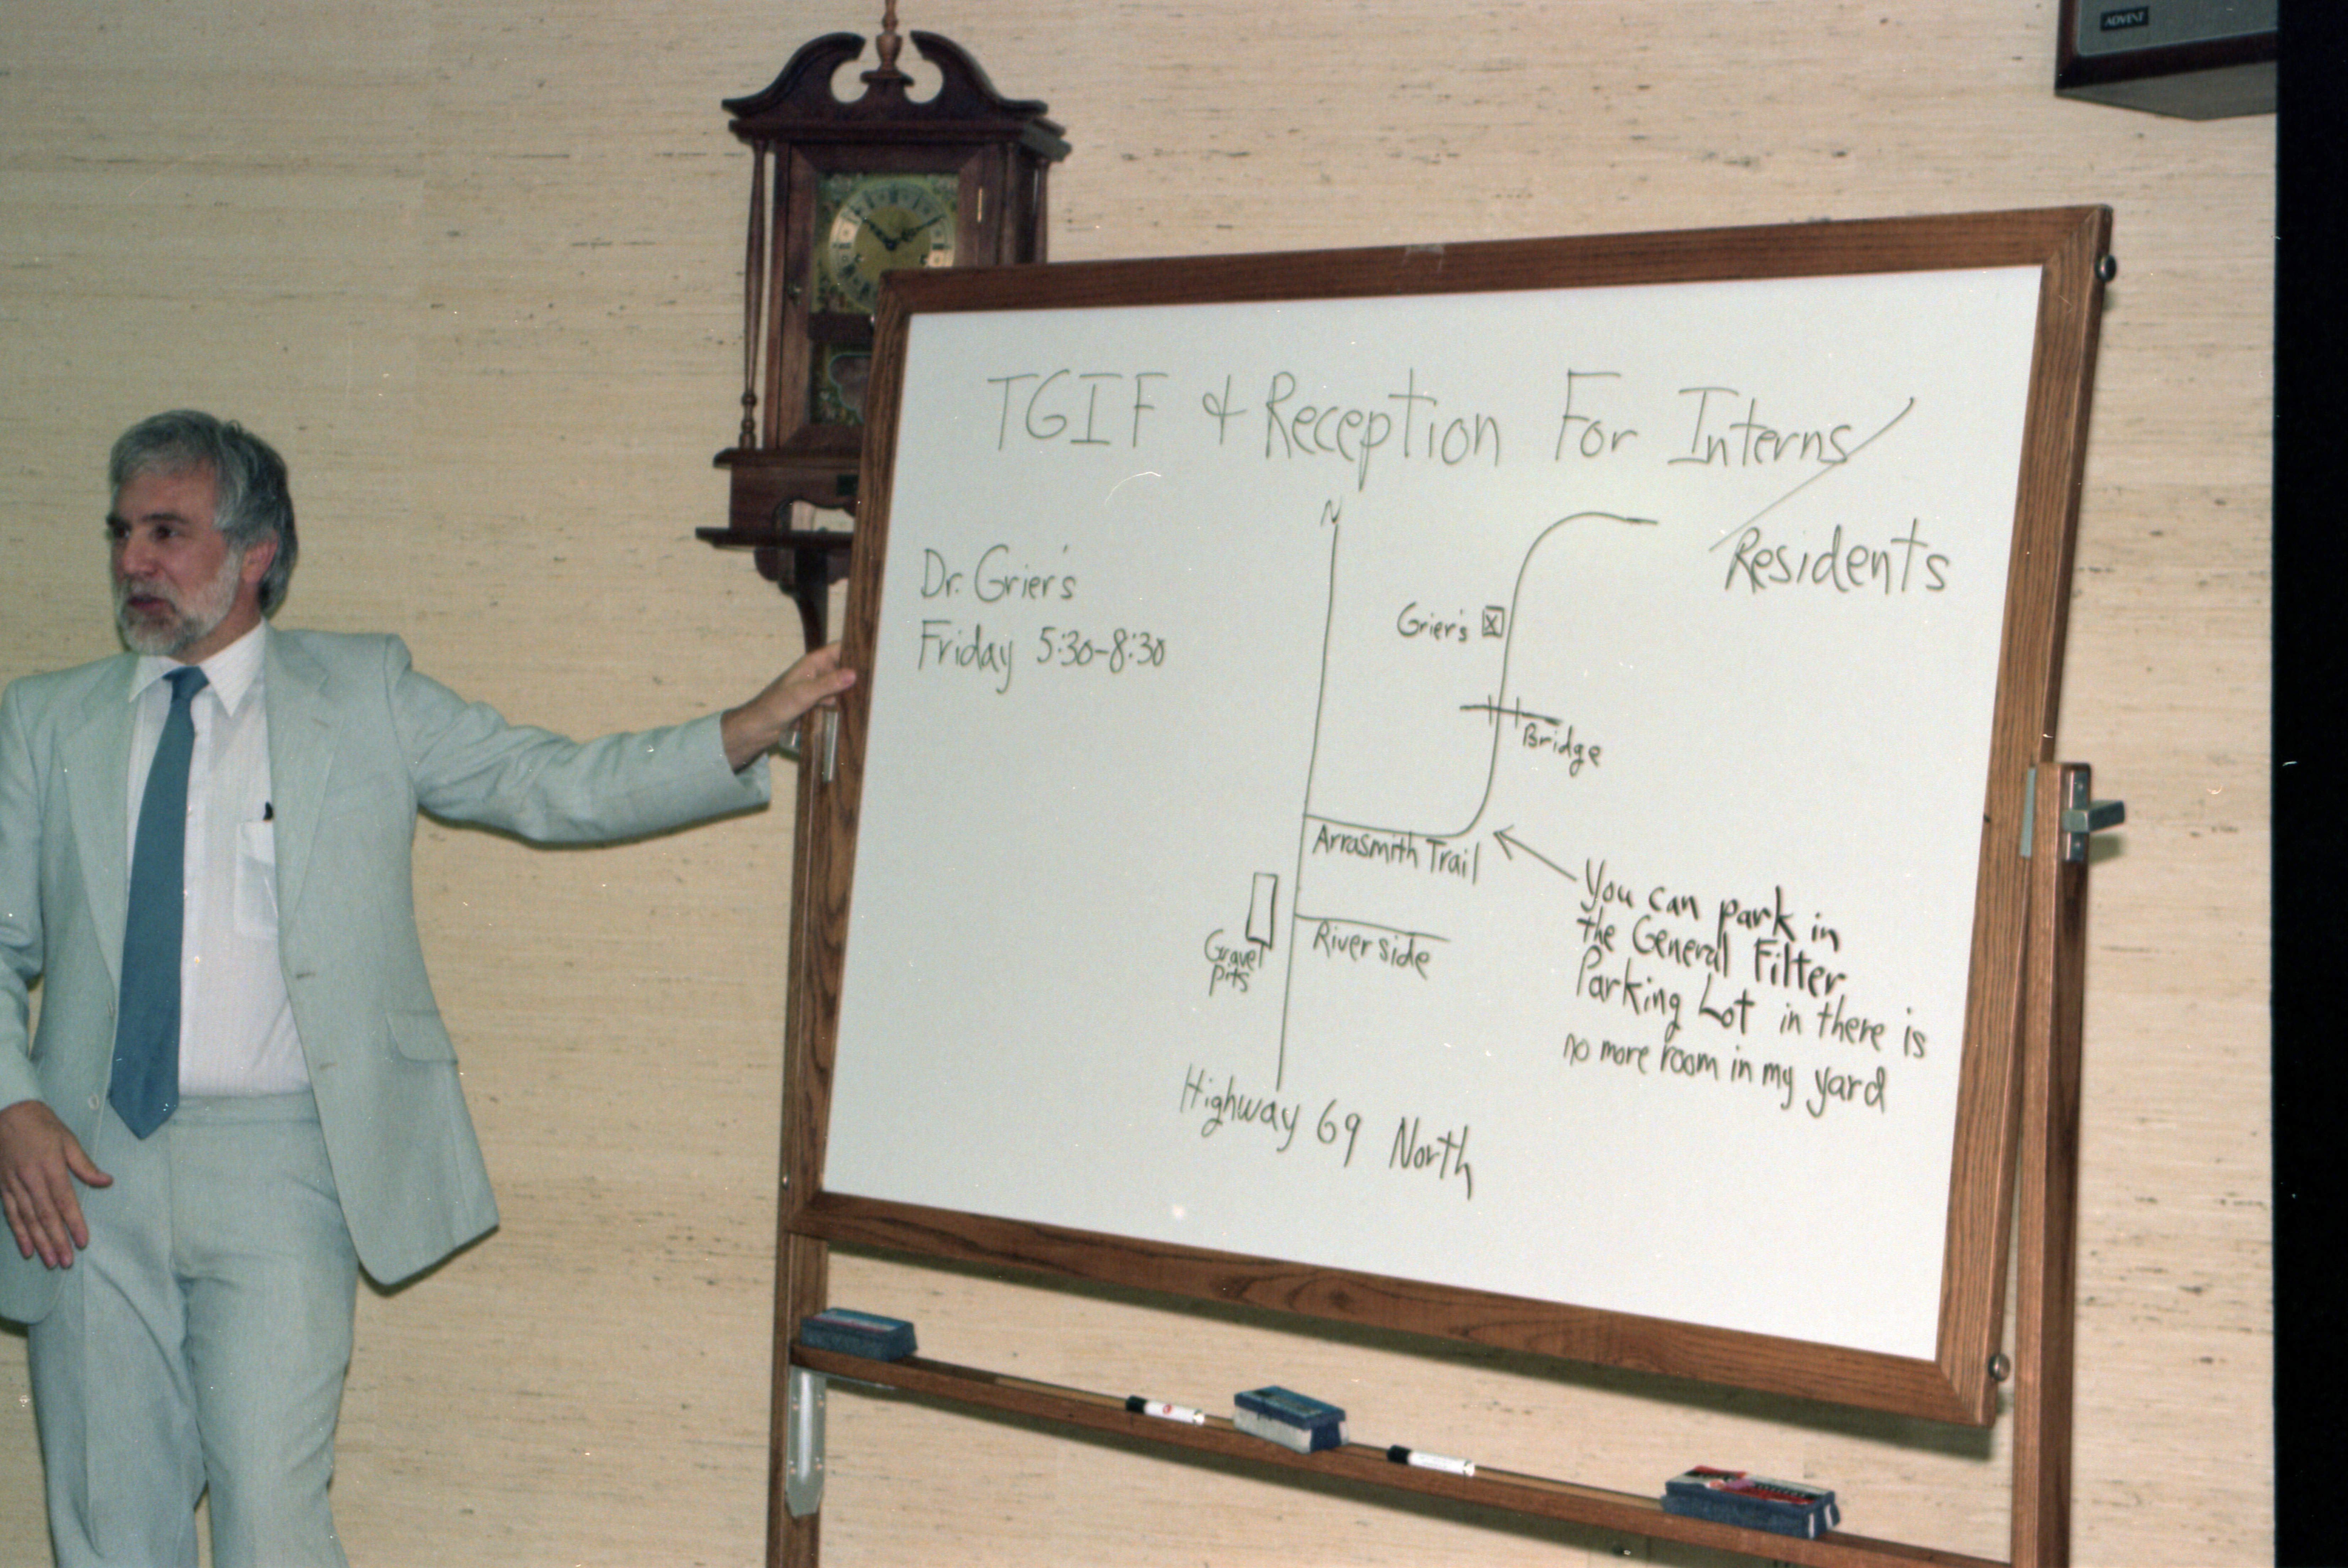 ADVENT
TGIF & Reception For Interns/
Residents
Dr. Grier's
Friday 5:30-8:30
N
Grier's X
Bridge
Arrasmith Trail
Gravel
Pits
Riverside
You can park in
the General Filter
Parking Lot in there is
no more room in my yard
Highway 69 North